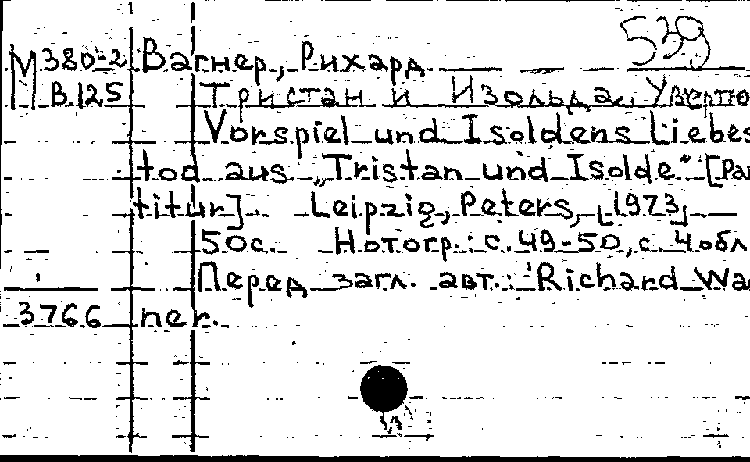 539
М380-2 Вагнер, Рихард
В.125 Тристан и Изольда. Увертю
Vorspiel und Isoldens Liebes
tod aus „Tristan und Isolde“ [Par
titur]. Leipzig, Peters, [1973]
50с. Нотогр.: с. 49-50, с. 4 обл
Перед загл. авт.: Richard Wag
3766 ner.